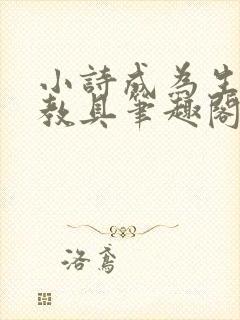 小詩成為生
教具筆趣閣
洛鳶